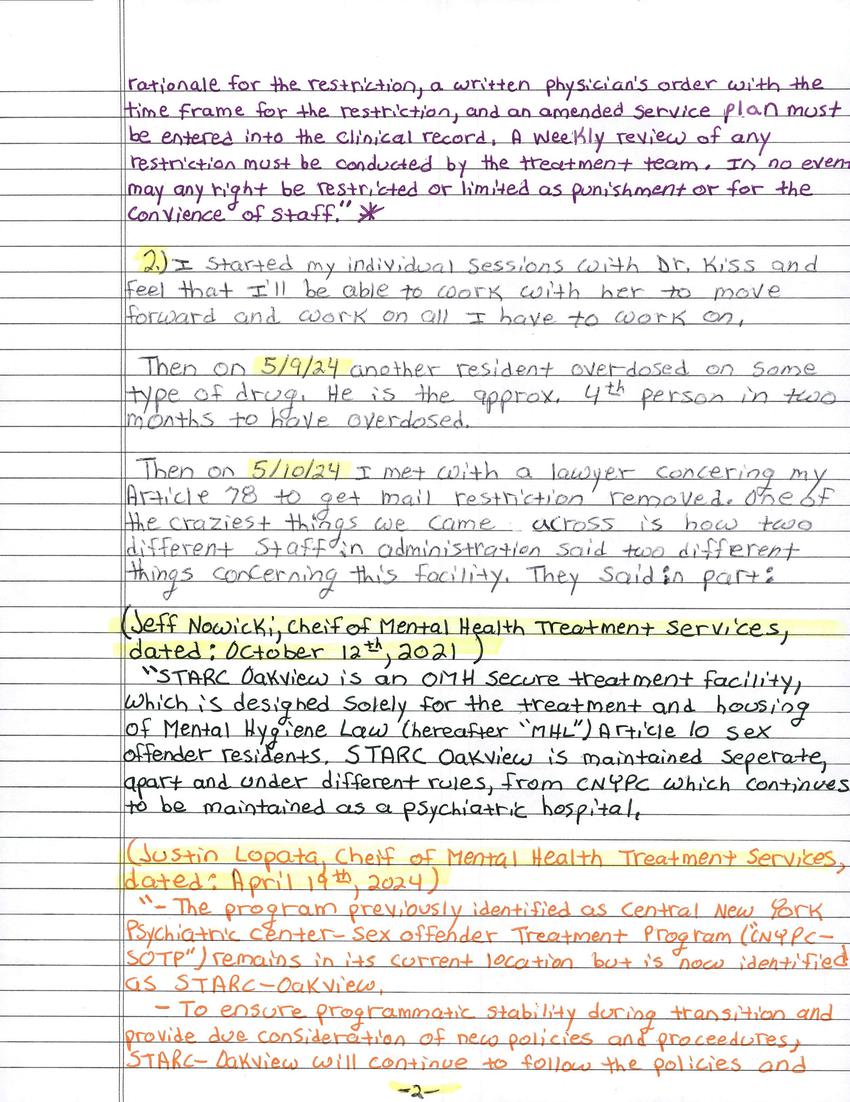 rationale for the restriction, a written physician's order with the
time frame for the restriction, and an amended service plan must
be entered into the clinical record. A weekly review of any
restriction must be conducted by the treatment team. In no even
may any right be restricted or limited as punishment or for the
convience of staff." *
2.) I started my individual sessions with Dr. Kiss and
feel that I'll be able to work with her to move
forward and work on all I have to work on.
Then on 5/9/24 another resident overdosed on some
type of drug. He is the approx. 4th person in two
months to have overdosed.
Then on 5/10/24 I met with a lawyer concering my
Article 78 to get mail restriction removed. One of
the craziest things we came across is how two
different staff in administration said two different
things concerning this facility. They said in part:
(Jeff Nowicki, Cheif of Mental Health Treatment Services,
dated: October 12th, 2021)
"STARC Oakview is an OMH secure treatment facility,
which is designed solely for the treatment and housing
of Mental Hygiene Law (hereafter "MHL") Article 10 sex
offender residents. STARC Oakview is maintained seperate,
apart and under different rules, from CNYPC which continues
to be maintained as a psychiatric hospital.
(Justin Lopata, Cheif of Mental Health Treatment Services,
dated: April 19th, 2024)
"- The program previously identified as Central New York
Psychiatric Center-Sex offender Treatment Program ("CNYPC-
SOTP") remains in its current location but is now identified
as STARC-Oakview.
- To ensure programmatic stability during transition and
provide due consideration of new policies and proceedures,
STARC-Oakview will continue to follow the policies and
-2-